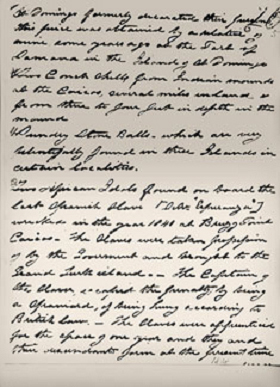 St Domingo formerly decorated their
This piece was obtained by
mine some years ago at the Port of
Samana in the Island of St Domingo
Two Conch Shells from Indian mounds
at the Caicos, several miles inland, &
from three to four feet in depth in the
mounds
Sundry Stone Balls, which are very
plentifully found in these Islands in
certain localities.
Two African Idols found on board the
last Spanish Slaver
wrecked in the year 1841 at Breezy Point
Caicos. The slaves were taken possession
of by the Government and brought to the
Grand Turk island. — The Captain of
the slaver escaped the penalty by being
a Spaniard, of being hung according to
British Law. — The slaves were apprenticed
for the space of one year and they and
their descendants form at the present time